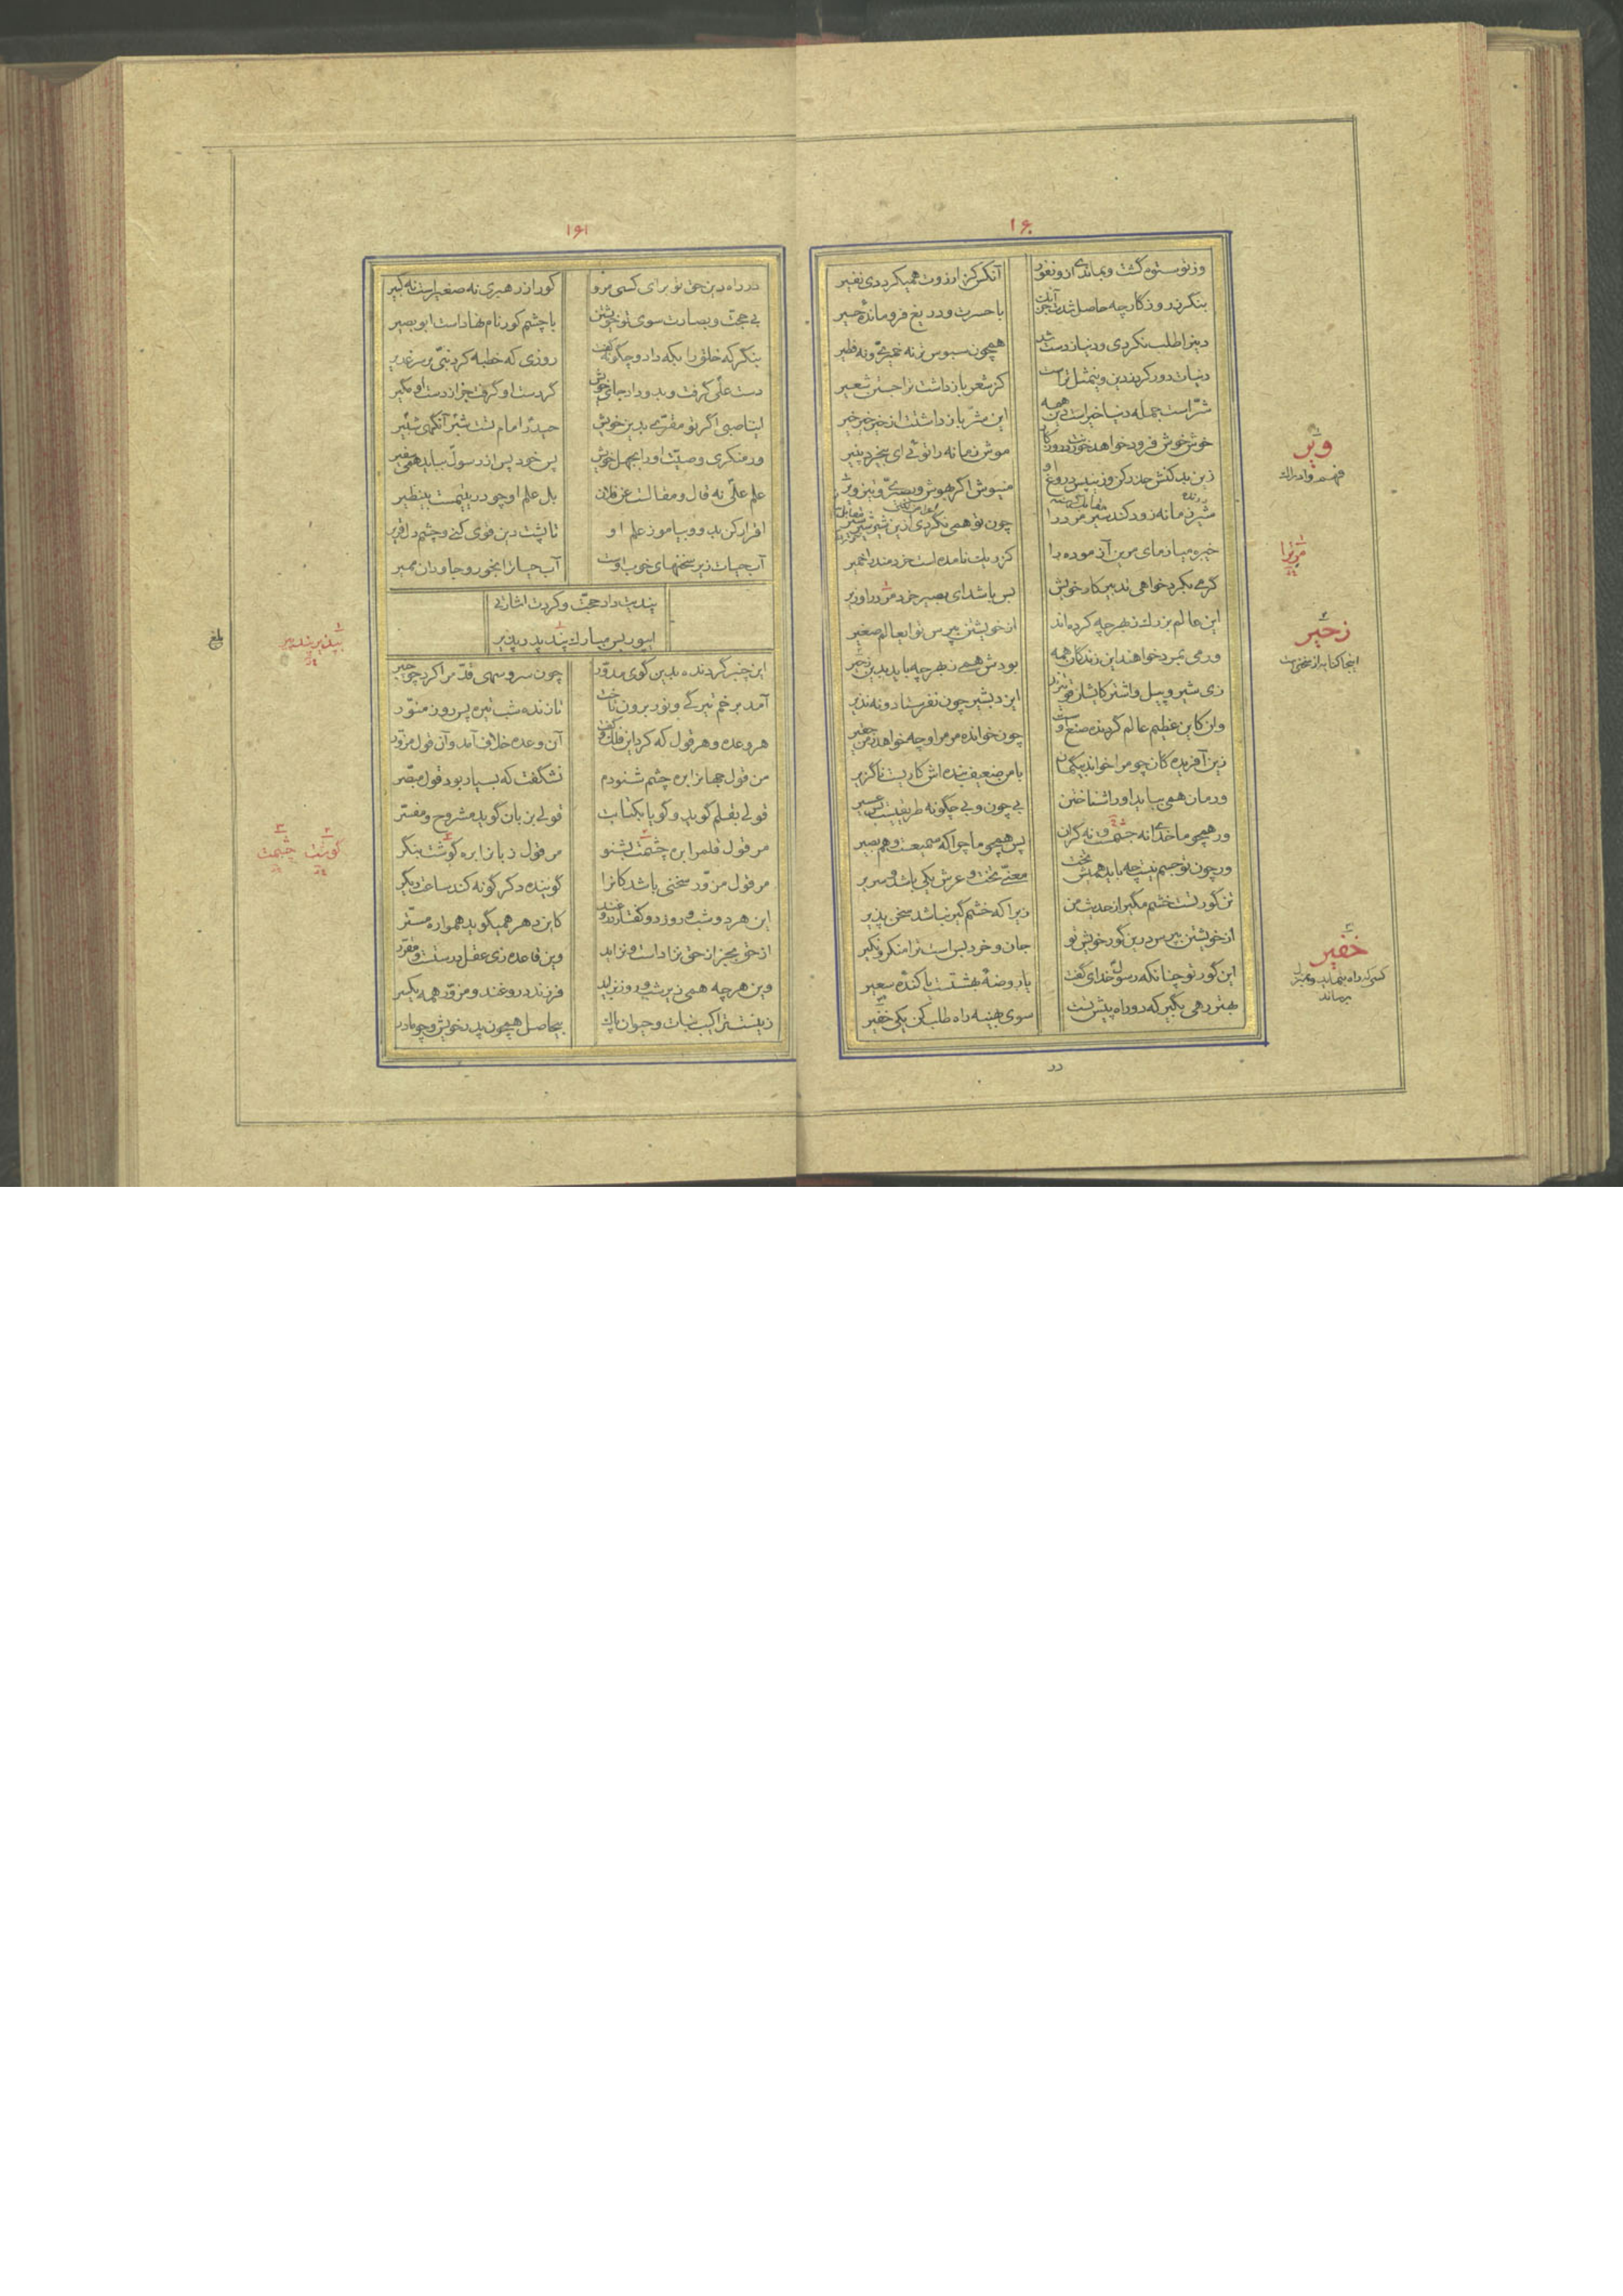 ۱۶۰
وز تو ستوه گشت و بماندی ازو نفور
آنکس کز ارزوت همیکردی نفیر
بنگر ز روزگار چه حاصل شدت جز آنک
با حسرت و دریغ فرو مانده حسیر
دین را طلب نکردی و دنیا ز دست شد
همچون سبوس تر نه خمیری و نه فطیر
دنیات دور کرد ز دین وین مثل تراست
کز شعر باز داشت ترا جستن شعیر
شر است جمله دنیا خیر است دین همه
این شر باز داشتت از خیر خیر خیر
خوش خوش فرود خواهد خوردنت روزگار
موش زمانه را توئی ای بیخرد پنیر
زین بد کنش حذر کن و زین پس دروغ او
منیوش اگر بهوش و بصری و تیز ویر
شیر زمانه زود کند سیر مرد را
چون تو همی نگردی ازین شیر شیر سیر
خیره میازمای مر این آزموده را
کز ریگ نامده است خردمند را خمیر
گر می بکرد خواهی تدبیر کار خویش
بس باشد ای بصیر خرد مر ترا وزیر
این عالم بزرگ ز بهر چه کرده اند
از خویشتن بپرس تو ای عالم صغیر
ور می بمرد خواهند این زندگان همه
بودش همی ز بهر چه باید بدین زحیر
زی شیر و پیل و اشتر کایشان قوی ترند
ایزد بشیر چون نفرستاد و نه نذیر
وان کاین عظیم عالم گردنده صنع اوست
چون خوانده مر مرا و چه خواهد ز من حقیر
زین آفریدگان چو مرا خواند بیگمان
با من ضعیف بنده اش کاریست ناگزیر
ور مان همی بباید او را شناختن
بی چون و بی چگونه طریقیست بس عسیر
ور همچو ما خدای نه جسمست و نه گران
پس همچو ما چرا که سمیعست و هم بصیر
ور چون تو جسم نیست چه باید همیش تخت
معنی تخت و عرش یکی باشد و سریر
تن گور تست خشم مگیر از حدیث من
زیرا که خشم گیر نباشد سخن پذیر
از خویشتن بپرس درین گور خویش تو
جان و خرد بس است ترا منکر و نکیر
این گور تو چنانکه رسول خدای گفت
یا روضه بهشتست یا کنده سعیر
بهتر رهی بگیر که دو راه پیش تست
سوی بهینه راه طلب کن یکی خفیر
در
ویر
فهم و ادراک
مر ترا
زحیر
اینجا کنایه از سختی است
خفیر
کسی که راه بنماید و بمنزل برساند
۱۶۱
در راه دین حق تو برای کسی مرو
کو را ز رهبری نه صغیر است نه کبیر
بی حجت و بصارت سوی تو خویشتن
با چشم کور نام نهاده است ابو بصیر
بنگر که خلق را بکه داد و چگونه گفت
روزی که خطبه کرد نبی بر سر غدیر
دست علی گرفت و بدو داد جای خویش
گر دست او گرفت جز از دست او مگیر
ای ناصبی اگر تو مقری بدین خویش
حیدر امام تست شبر آنگهی شبیر
ور منکری وصیت او را بجهل خویش
پس خود پس از رسول بباید همی سفیر
علم علی نه قال و مقالست عن فلان
بل علم او چو در یتیمست بی نظیر
اقرار کن بدو و بیاموز علم او
تا پشت دین قوی کنی و چشم دل قریر
آب حیات زیر سخنهای خوب اوست
آب حیات را بخور و جاودان ممیر
پندیت داد حجت و کردت اشارتی
ای پور بس مبارک پند پدر پذیر
این چنبر گردنده بدین گوی مدور
چون سرو سهی قد مرا کرد چو چنبر
آمد برخم تیرگی و نور برون تاخت
تا زنده شب تیره پس روز منور
هر وعده و هر قول که کرد این فلک و گفت
آن وعده خلاف آمد و آن قول مزور
من قول جهان را بره چشم شنودم
نشگفت که بسیار بود قول مبصر
قولی بقلم گوید و گویا بکتابت
قولی بزبان گوید مشروح و مفسر
مر قول قلم را بره چشمت بشنو
مر قول زبان را بره گوشت بنگر
مر قول مزور سخنی باشد کانرا
گوینده دگر گونه کند ساعت دیگر
این هر دو شب و روز دو گفتار دروغند
کاین دهر همیگوید هموار مستر
از حق بجز از حق نزاده است و نزاید
وین قاعده زی عقل درست و مقرر
وین هر چه همی زیر شب و روز بزاید
فرزند دروغند و مزور همه یکسر
زینست ترا کیب نبات و حیوان پاک
بیحاصل همچون پدر خویش و چو مادر
بپذیر پند پیر
بلغ
گوشت
چشمت